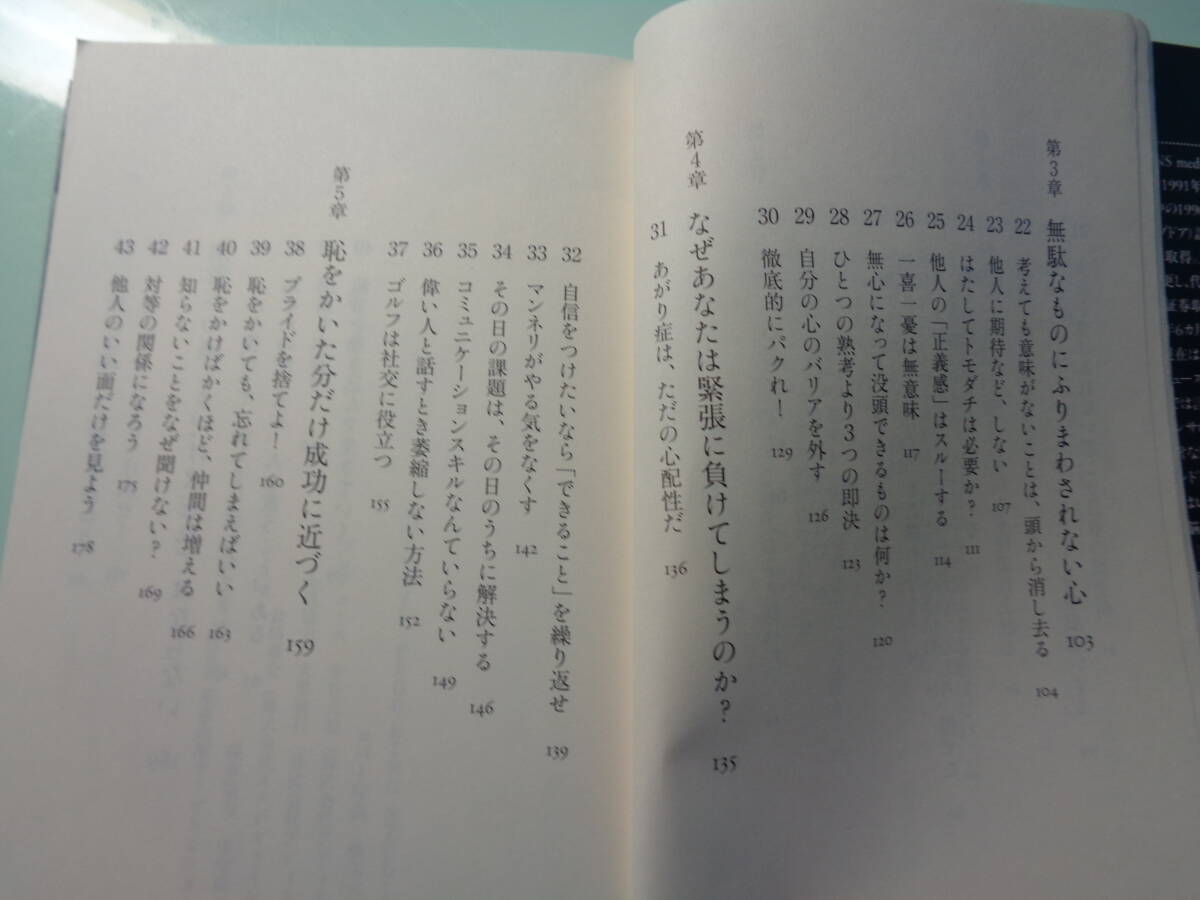 第3章 無駄なものにふりまわされない心 103
22 考えても意味がないことは、頭から消し去る 104
23 他人に期待など、しない 107
24 はたしてトモダチは必要か? 111
25 他人の「正義感」はスルーする 114
26 一喜一憂は無意味 117
27 無心になって没頭できるものは何か? 120
28 ひとつの熟考より3つの即決 123
29 自分の心のバリアを外す 126
30 徹底的にパクれ! 129
第4章 なぜあなたは緊張に負けてしまうのか? 135
31 あがり症は、ただの心配性だ 136
32 自信をつけたいなら「できること」を繰り返せ 139
33 マンネリがやる気をなくす 142
34 その日の課題は、その日のうちに解決する 146
35 コミュニケーションスキルなんていらない 149
36 偉い人と話すとき萎縮しない方法 152
37 ゴルフは社交に役立つ 155
第5章 恥をかいた分だけ成功に近づく 159
38 プライドを捨てよ! 160
39 恥をかいても、忘れてしまえばいい 163
40 恥をかけばかくほど、仲間は増える 166
41 知らないことをなぜ聞けない? 169
42 対等の関係になろう 175
43 他人のいい面だけを見よう 178
NS med
1991年
の1996
取得。